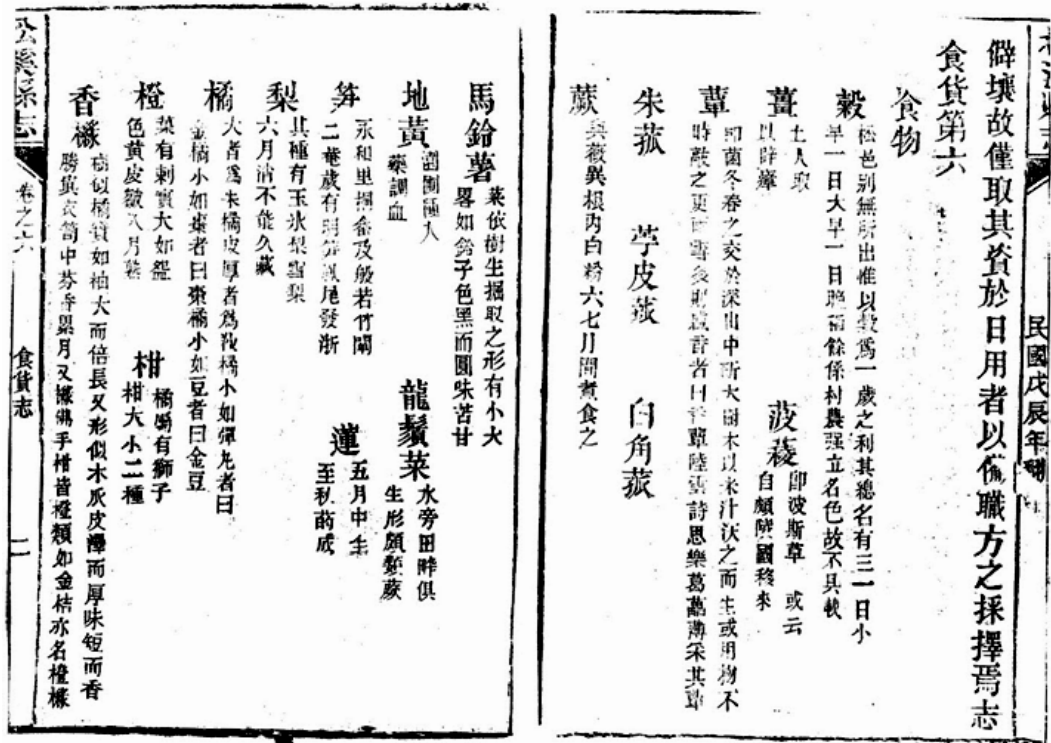 僻壤故僅取其資於日用者以俻職方之採擇焉志
食貨第六
食物
穀 松邑别無所出惟以穀爲一歲之利其總名有三一曰小
早一曰大早一曰晚稻餘係村農强立名色故不具載
薑 土人取
以時
菠薐 卽波斯草 或云
自頗陵國移來
蕈 卽菌冬春之交於深山中斫大樹木以米汁沃之而生或用物不
時敲之更
蕈陸雲詩思樂葛藟薄采其蕈
朱菰 苧皮菰 白角菰
蕨 與薇異根內白粉六七月間煮食之
馬鈴薯 葉依樹生掘取之形有小大
畧如鈴子色黑而圓味苦甘
地黃 園圃種入
藥調血
龍鬚菜 水旁田畔俱
生形頗類蕨
笋 永和里
及般若竹閣
二菴歲有明笋鳳尾發浙
蓮 五月中生
至秋而成
梨 其種有玉氷梨雪梨
六月清不能久藏
橘 大者爲朱橘皮厚者爲
橘小如彈丸者曰
金橘小如棗者曰棗橘小如豆者曰金豆
橙 葉有刺實大如
色黃皮皺八月熟
柑 橘屬有獅子
柑大小二種
香櫞 樹似橘實如柚大而倍長又形似木瓜皮澤而厚味短而香
勝寘衣笥中芬香累月又
手柑皆橙類如金桔亦名橙櫞
松溪縣志
卷之六
食貨志
二
民國戊辰年